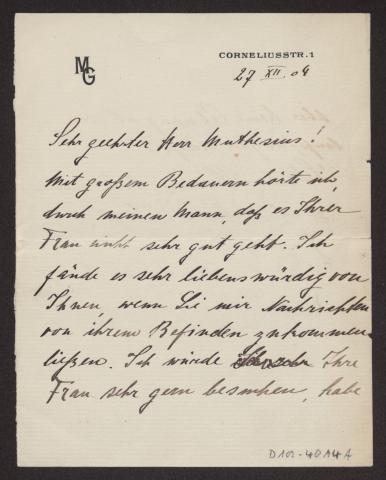 MG
CORNELIUSSTR. 1
27 XII. 04
Sehr geehrter Herr Muthesius!
Mit großem Bedauern hörte ich,
durch meinen Mann, daß es Ihrer
Frau nicht sehr gut geht. Ich
fände es sehr liebenswürdig von
Ihnen, wenn Sie mir Nachrichten
von ihrem Befinden zukommen
ließen. Ich würde Ihre
Frau sehr gern besuchen, habe
D102-4014 A